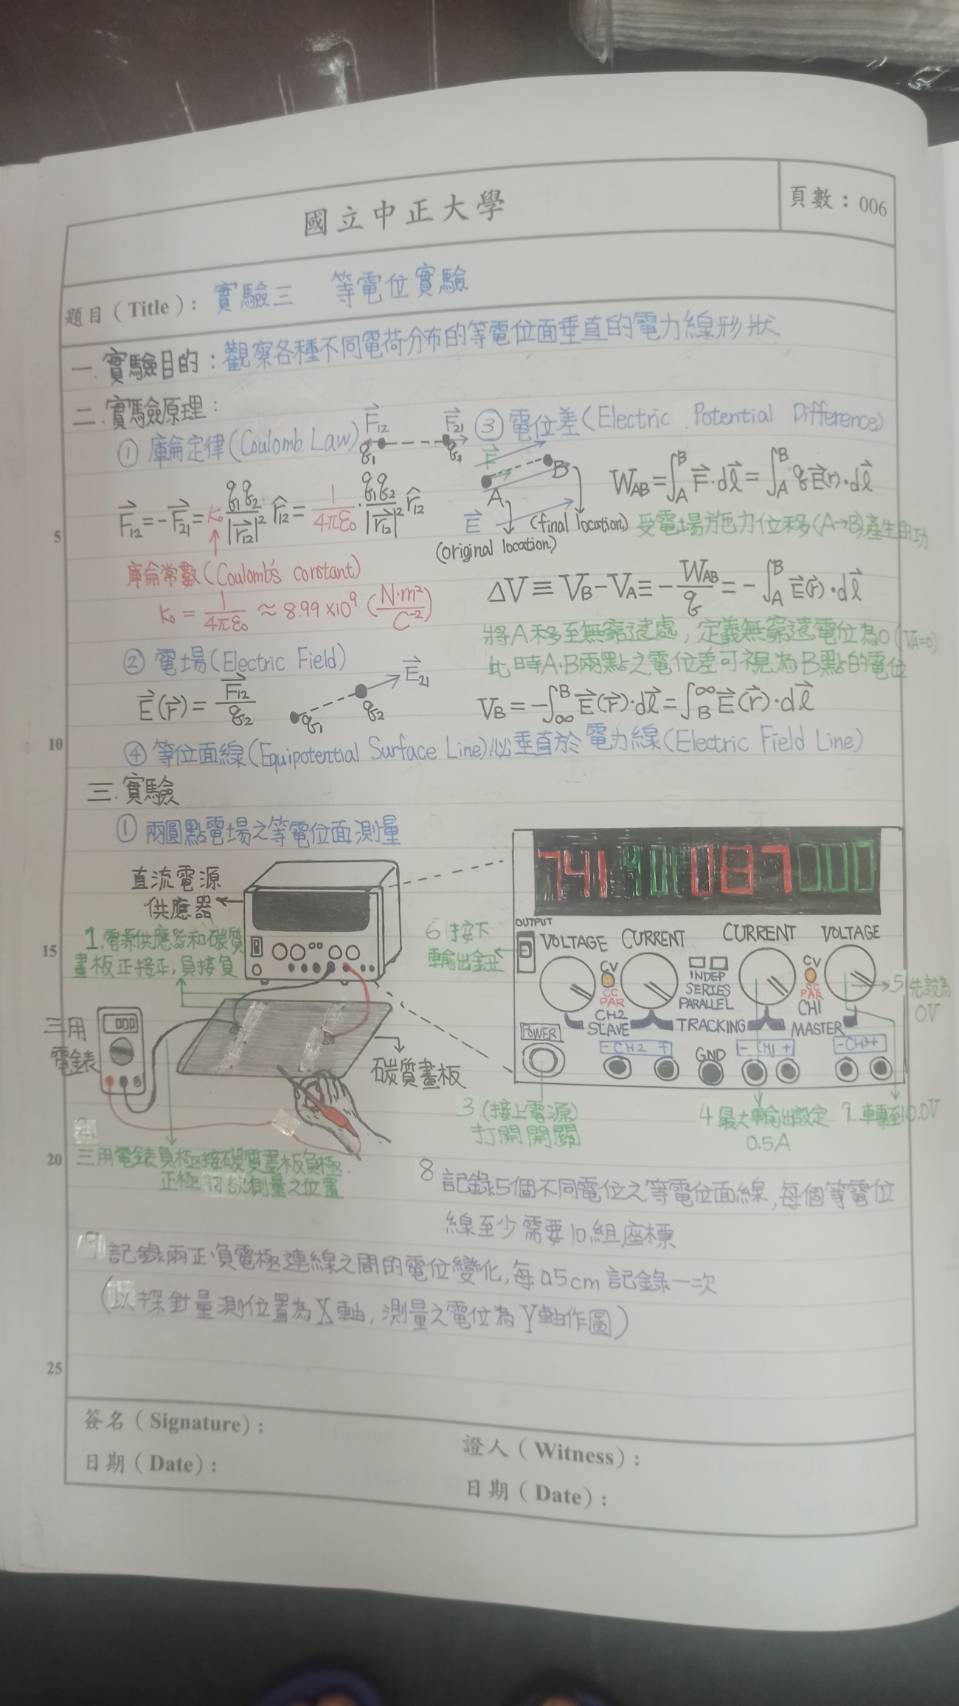 國立中正大學
頁數：006
題目（Title）：實驗三 等電位實驗
一.實驗目的：觀察各種不同電荷分布的等電位面垂直的電力線形狀
二.實驗原理：
① 庫侖定律(Coulomb Law)
F₁₂ F₂₁
q₁ q₂
F₁₂=-F₂₁=K₀ q₁q₂/|r₁₂|² r̂₁₂=1/4πε₀·q₁q₂/|r₁₂|² r̂₁₂
庫侖常數(Coulomb's constant)
K₀=1/4πε₀≈8.99×10⁹(N·m²/C⁻²)
② 電場(Electric Field)
E(r)=F₁₂/q₂
q₁ q₂ E₂₁
③ 電位差(Electric Potential Difference)
F A B
E
(original location)
(final location)
W_AB=∫_A^B F·dl=∫_A^B qE(r)·dl
受電場施力位移(A→B)產生的功
ΔV≡V_B-V_A≡-W_AB/q=-∫_A^B E(r)·dl
將A移至無窮遠處，定義無窮遠電位為0(V_A=0)
此時A.B兩點之電位差可視為B點的電位
V_B=-∫_∞^B E(r)·dl=∫_B^∞ E(r)·dl
④ 等位面線(Equipotential Surface Line)必垂直於電力線(Electric Field Line)
三.實驗
① 兩圓點電場之等電位面測量
直流電源
供應器
1.電源供應器和碳質
畫板正接正，負接負
三用
電錶
碳質畫板
2.
三用電錶負極接碳質畫板負極.
正極測量之位置
OUTPUT
VOLTAGE CURRENT CURRENT VOLTAGE
CV
CC
PAR
CH2
SLAVE
INDEP
SERIES
PARALLEL
TRACKING
CV
CC
PAR
CH1
MASTER
POWER
- CH2 +
GND
- CH1 +
- CH3 +
6 按下
輸出鈕
5.先設為
0V
3 (接上電源)
打開開關
4 最大輸出設定
0.5A
7.轉至10.0V
8 記錄5個不同電位之等電位面線，每個等電位
線至少需要10組座標
9 記錄兩正負電極連線之間的電位變化，每0.5cm記錄一次
(以探針量測位置為X軸，測量之電位為Y軸作圖)
5
10
15
20
25
簽名（Signature）：
日期（Date）：
證人（Witness）：
日期（Date）：